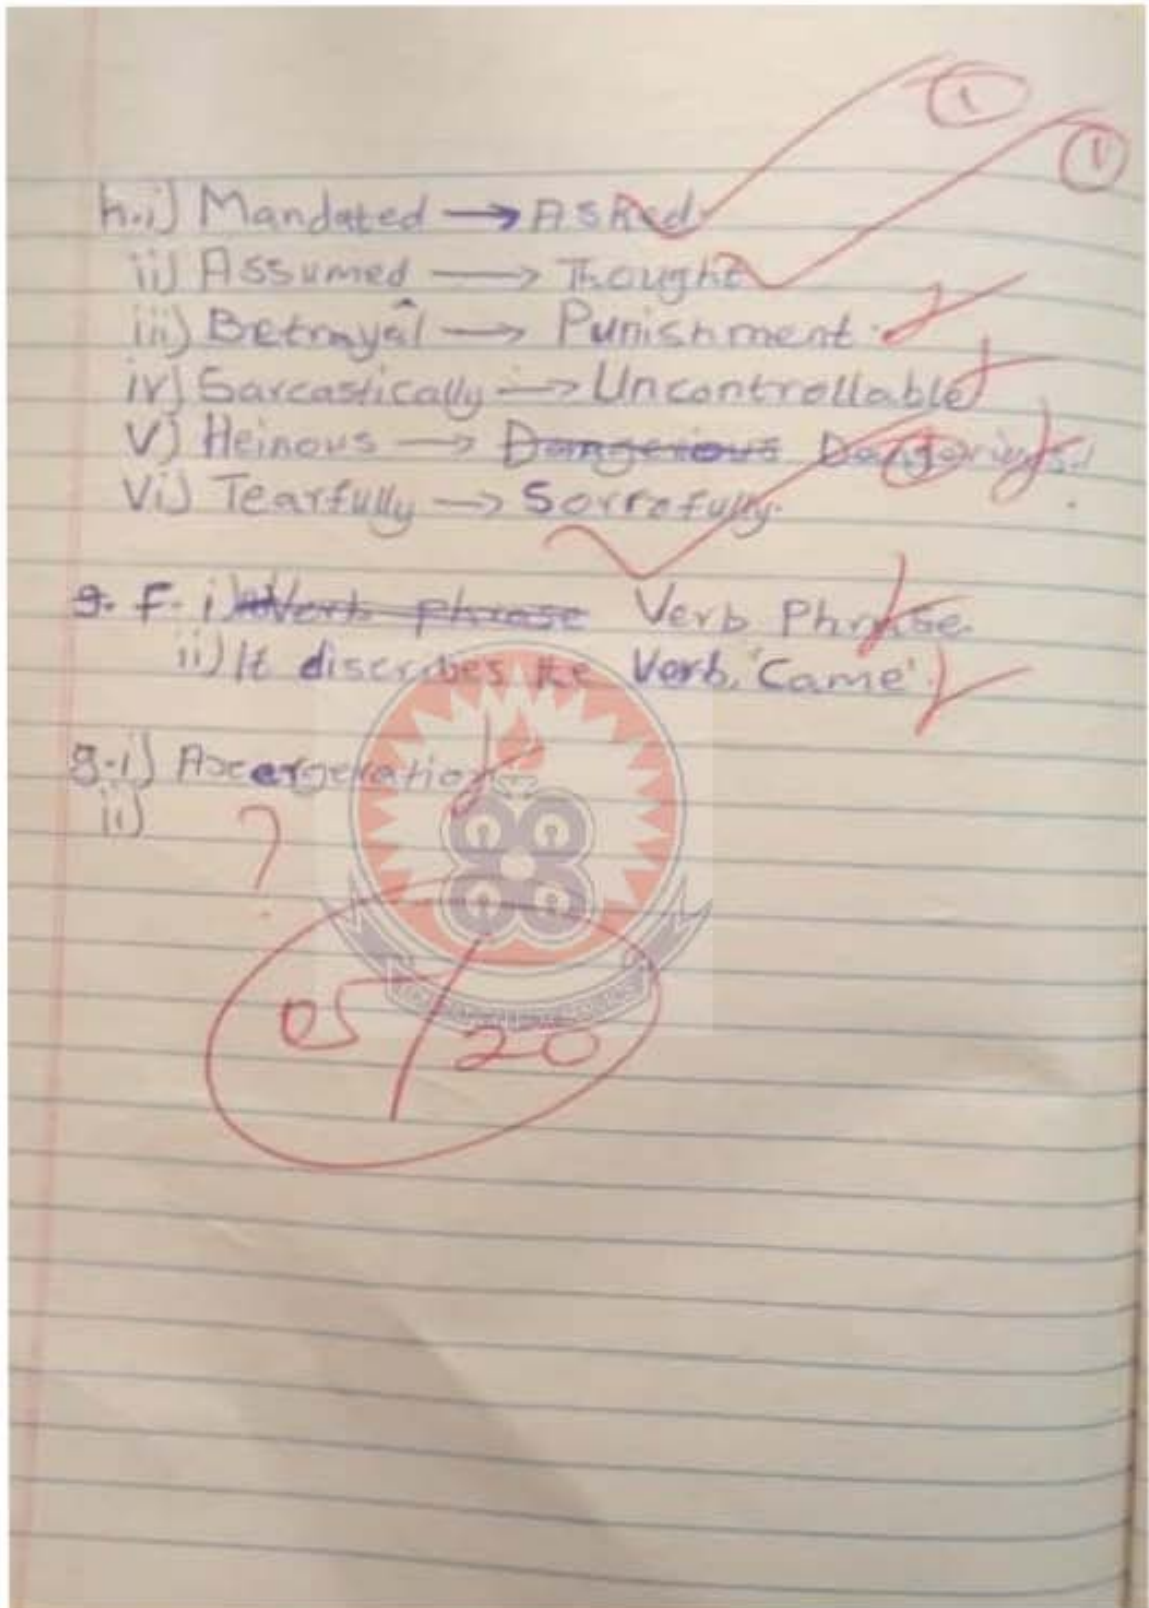 ①
①
h.i) Mandated → Asked
ii) Assumed → Thought
iii) Betrayal → Punishment.
iv) Sarcastically → Uncontrollable
v) Heinous → Dangerious Dangerious.
①
vi) Tearfully → Sorrofully.
g. F. i) Verb phrase Verb Phrase.
ii) It discribes the Verb, 'Came'.
g.i) Axcergeration
ii)
?
05/20